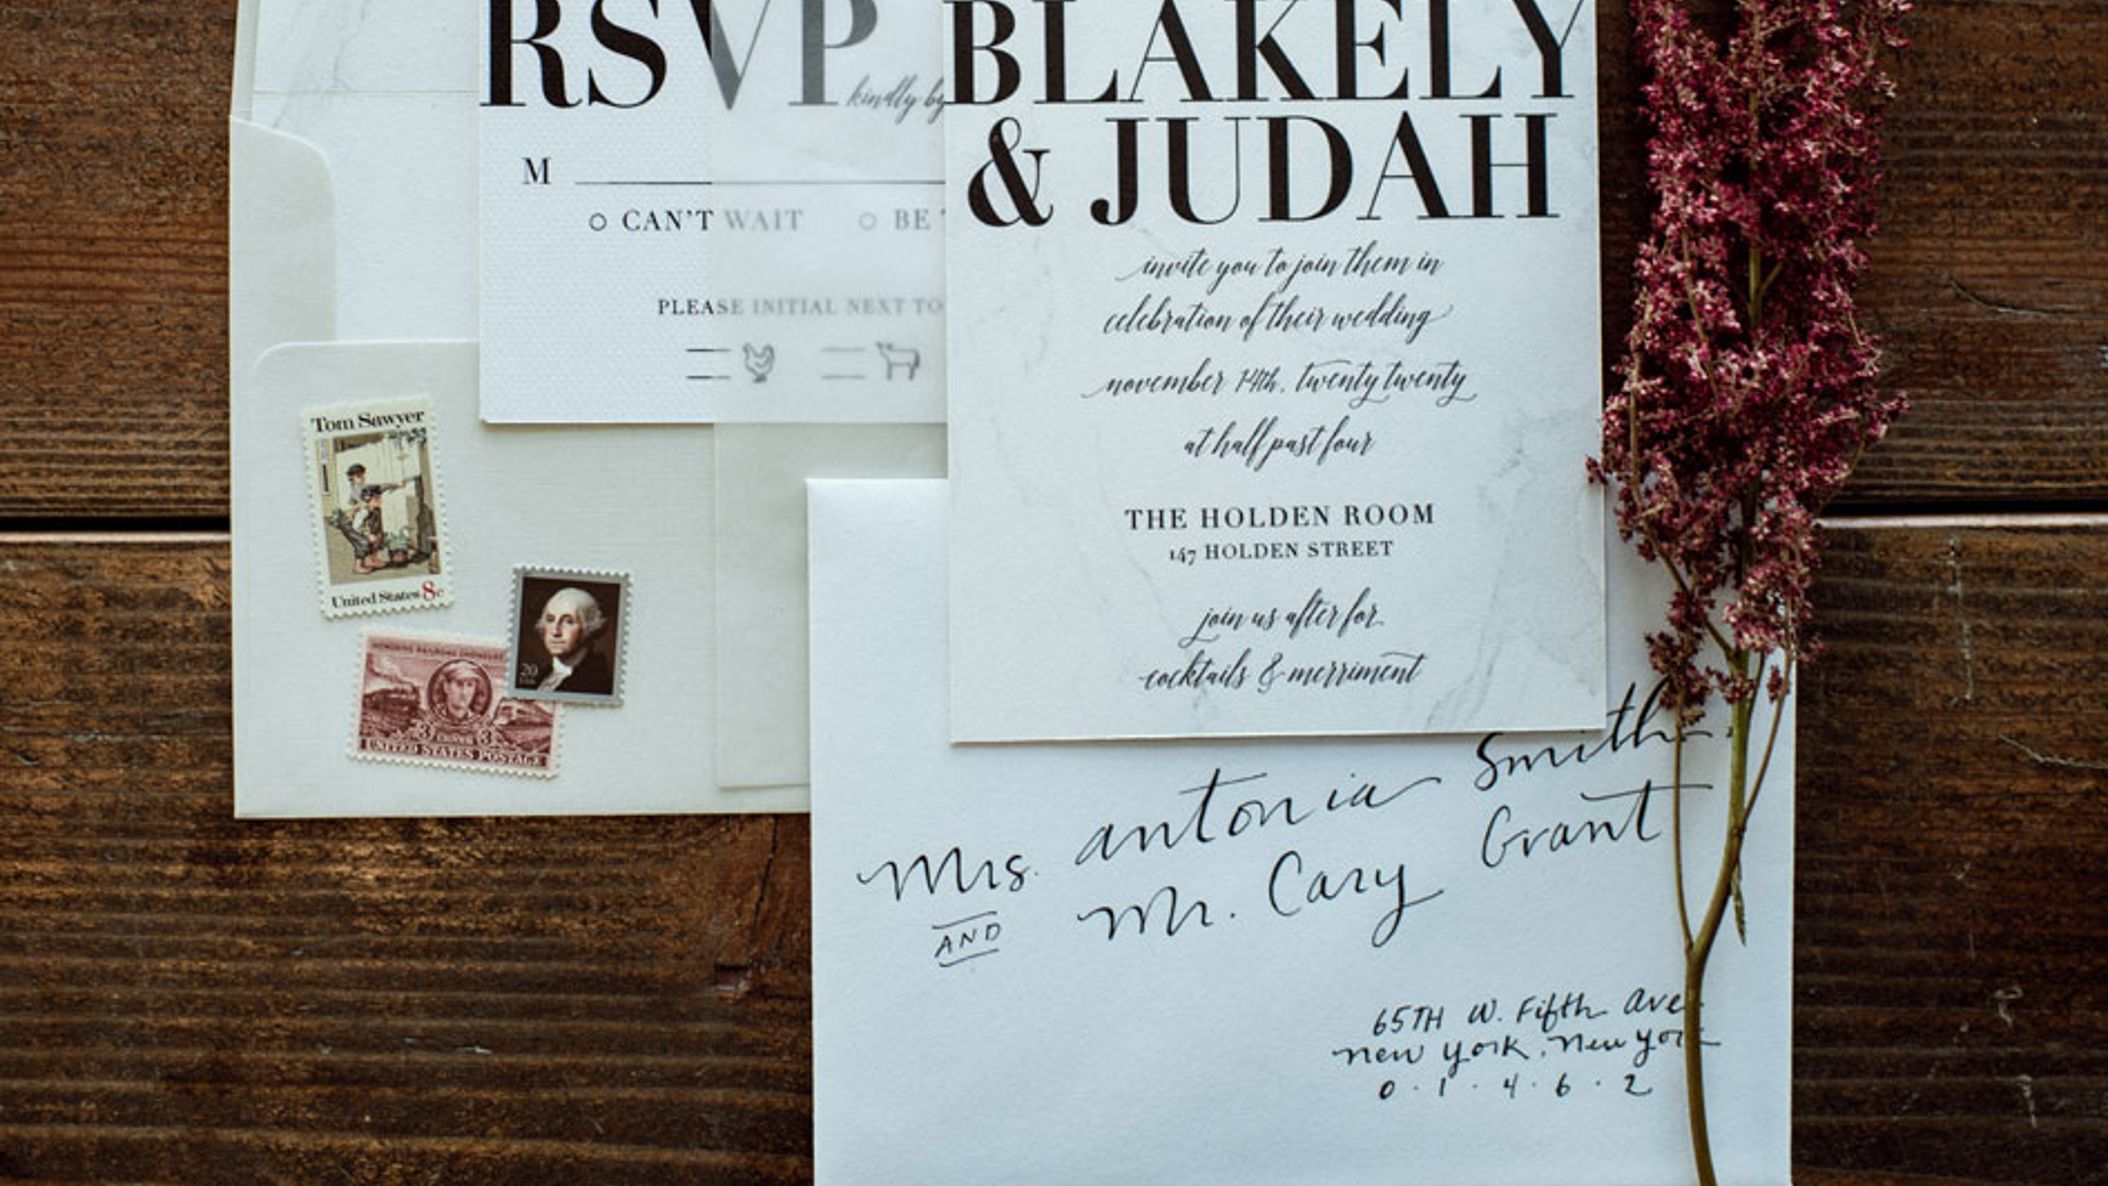 RSVP
kindly by
M
CAN'T WAIT
BE
PLEASE INITIAL NEXT TO
BLAKELY
& JUDAH
invite you to join them in
celebration of their wedding
november 14th, twenty twenty
at half past four
THE HOLDEN ROOM
147 HOLDEN STREET
join us after for
cocktails & merriment
Tom Sawyer
United States 8c
20
USA
HONORING RAILROAD ENGINEERS
3 CENTS 3
UNITED STATES POSTAGE
Mrs. antonia Smith
AND Mr. Cary Grant
65TH W. Fifth Ave
new york, new york
0 · 1 · 4 · 6 · 2